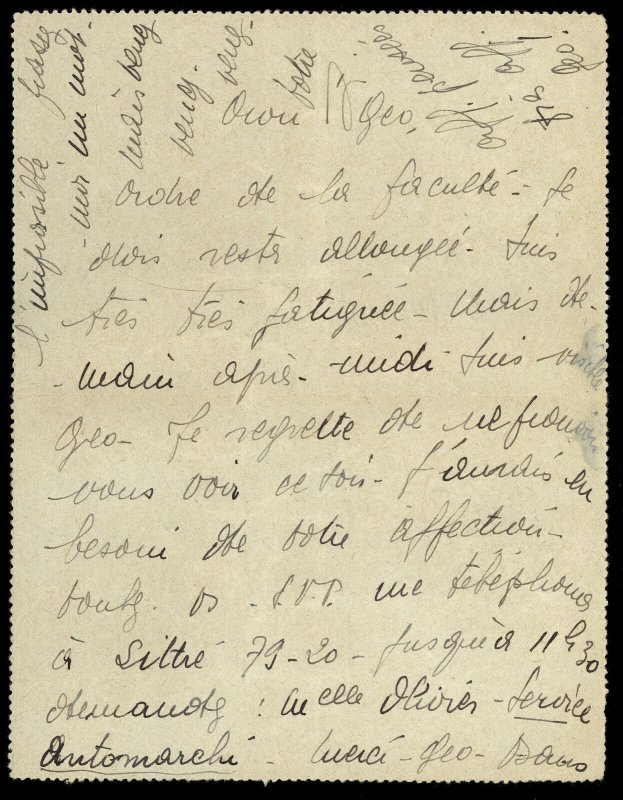 Mon Geo,
ordre de la faculté - Je
dois rester allongée - Suis
très très fatiguée - Mais de-
-main après-midi suis visible
Geo - Je regrette de ne pouvoir
vous voir ce soir - J'aurais eu
besoin de votre affection -
S.V.P. me téléphoner
à Littré 79-20 - Jusqu'à 11h30
demandez : Melle Olivier - Service
Antomarchi - Merci - Geo - Dans
l'impossible
- moi un mot -
mais venez
venez - venez -
votre